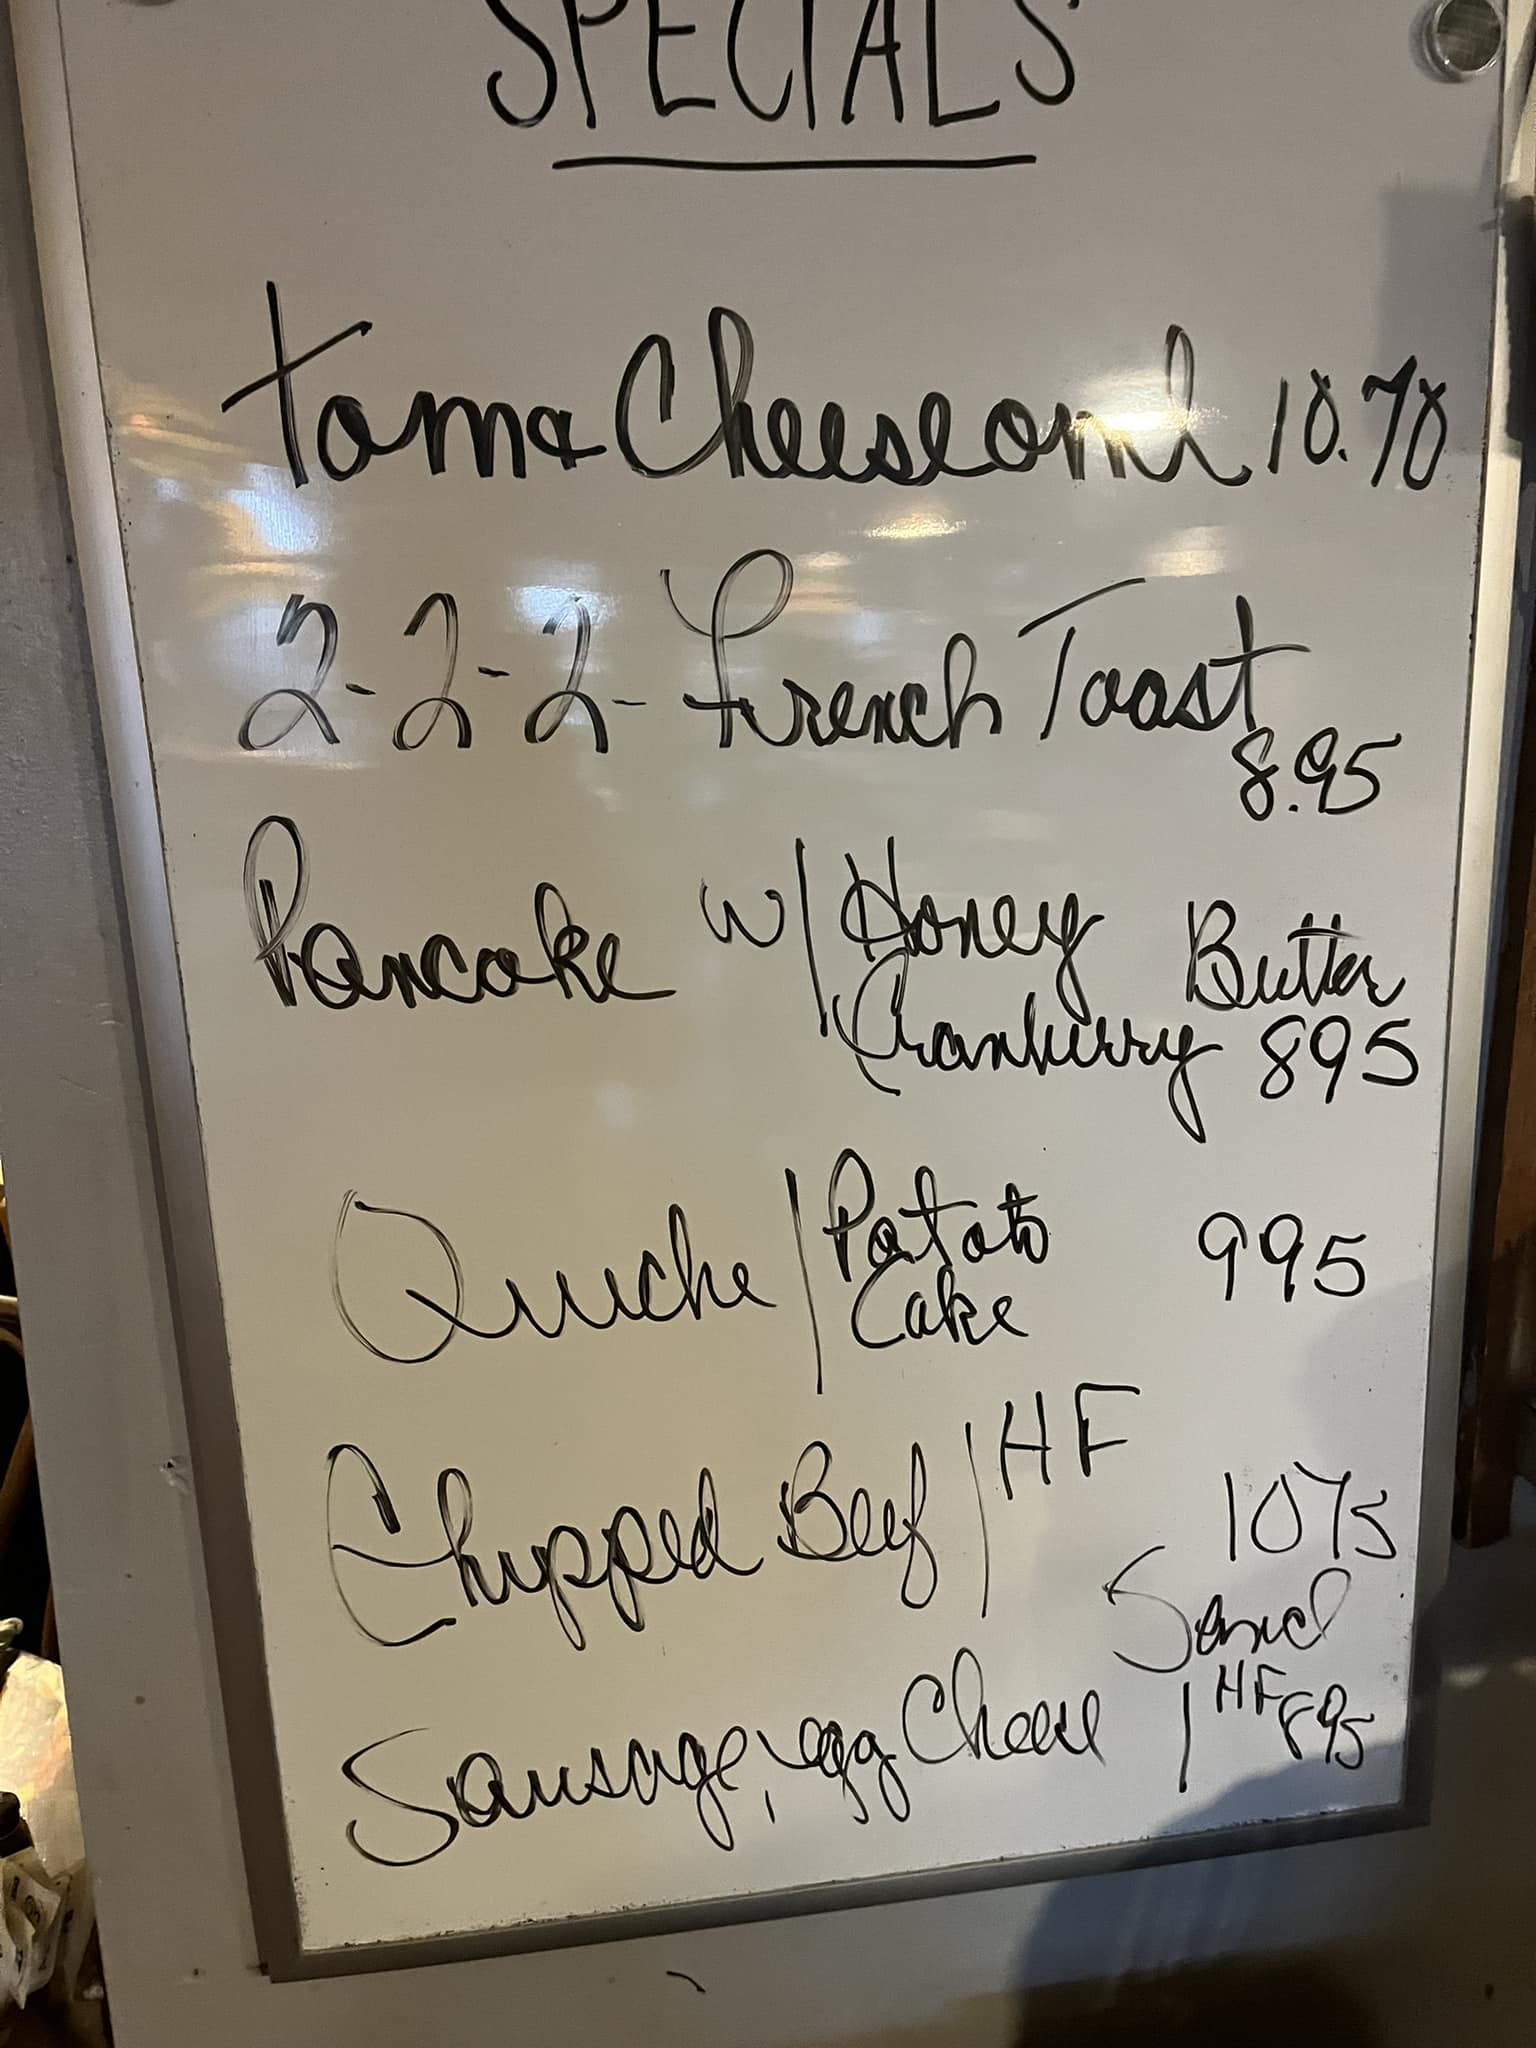 SPECIALS
Tom & Cheese oml 10.70
2-2-2- French Toast
8.95
Pancake w/ Honey Butter
Cranberry 895
Quiche / Potato 995
Cake
Chipped Beef / HF
1075
Sand
Sausage, egg Cheese / HF 895